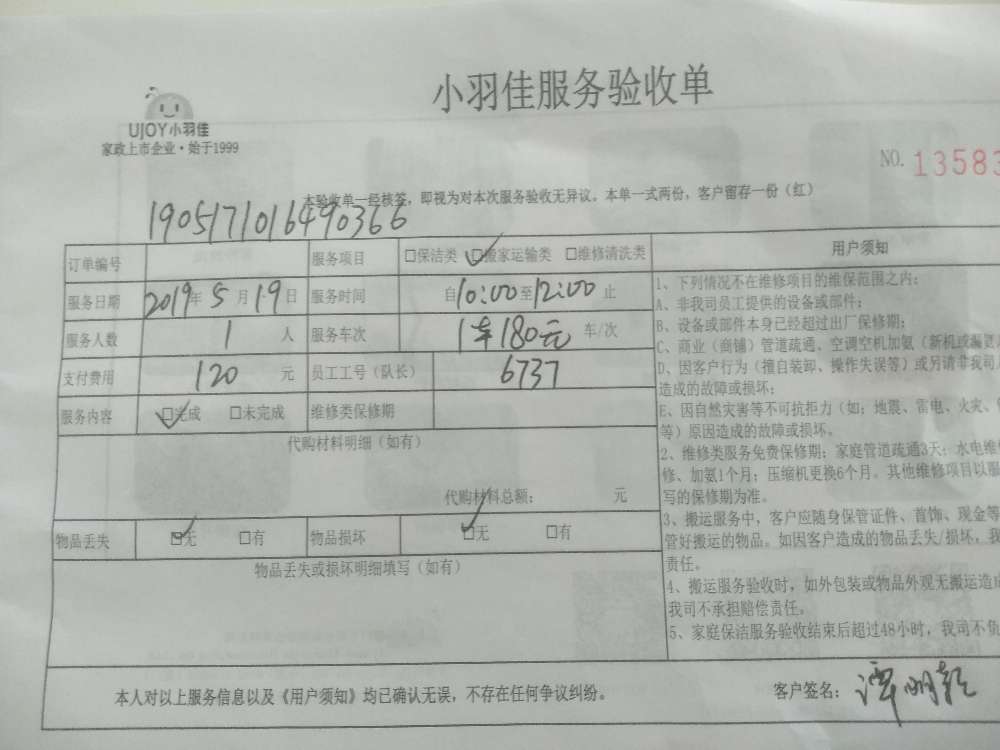 小羽佳服务验收单
UJOY小羽佳
家政上市企业·始于1999
NO. 13583
本验收单一经核签，即视为对本次服务验收无异议。本单一式两份，客户留存一份（红）
1905171016490366
订单编号 服务项目 □保洁类 □搬家运输类 □维修清洗类
服务日期 2019年5月19日 服务时间 自10:00至12:00止
服务人数 1 人 服务车次 1车180元 车/次
支付费用 120 元 员工工号（队长） 6737
服务内容 □完成 □未完成 维修类保修期
代购材料明细（如有）
代购材料总额： 元
物品丢失 □无 □有 物品损坏 □无 □有
物品丢失或损坏明细填写（如有）
用户须知
1、下列情况不在维修项目的维保范围之内：
A、非我司员工提供的设备或部件；
B、设备或部件本身已经超过出厂保修期；
C、商业（商铺）管道疏通、空调空机加氨（新机或漏
D、因客户行为（擅自装卸、操作失误等）或另请非我司
造成的故障或损坏；
E、因自然灾害等不可抗拒力（如：地震、雷电、火灾、
等）原因造成的故障或损坏。
2、维修类服务免费保修期：家庭管道疏通3天；水电维
修、加氨1个月；压缩机更换6个月。其他维修项目以服
写的保修期为准。
3、搬运服务中，客户应随身保管证件、首饰、现金等
管好搬运的物品。如因客户造成的物品丢失/损坏，我
责任。
4、搬运服务验收时，如外包装或物品外观无搬运造成
我司不承担赔偿责任。
5、家庭保洁服务验收结束后超过48小时，我司不负
本人对以上服务信息以及《用户须知》均已确认无误，不存在任何争议纠纷。
客户签名：谭明乾